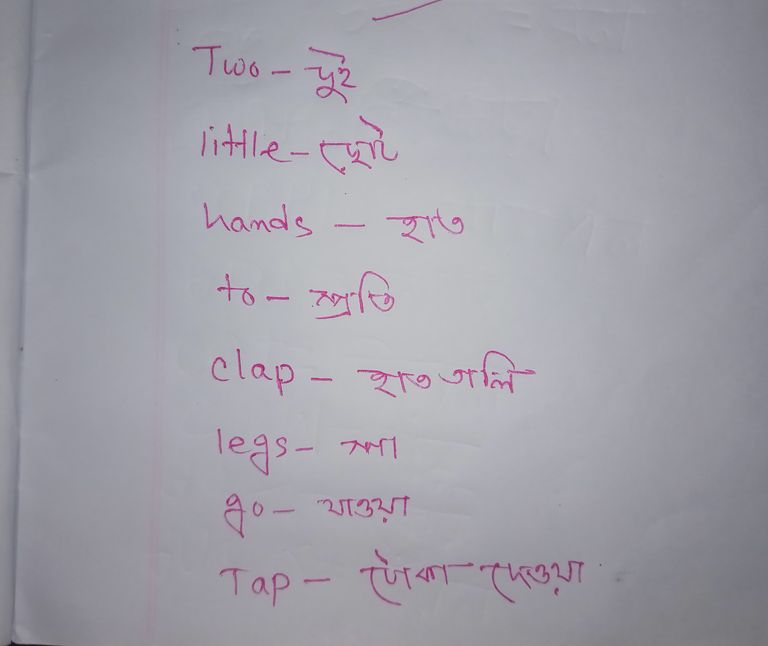 Two - দুই
little - ছোট
hands - হাত
to - প্রতি
clap - হাত তালি
legs - পা
go - যাওয়া
Tap - টোকা দেওয়া